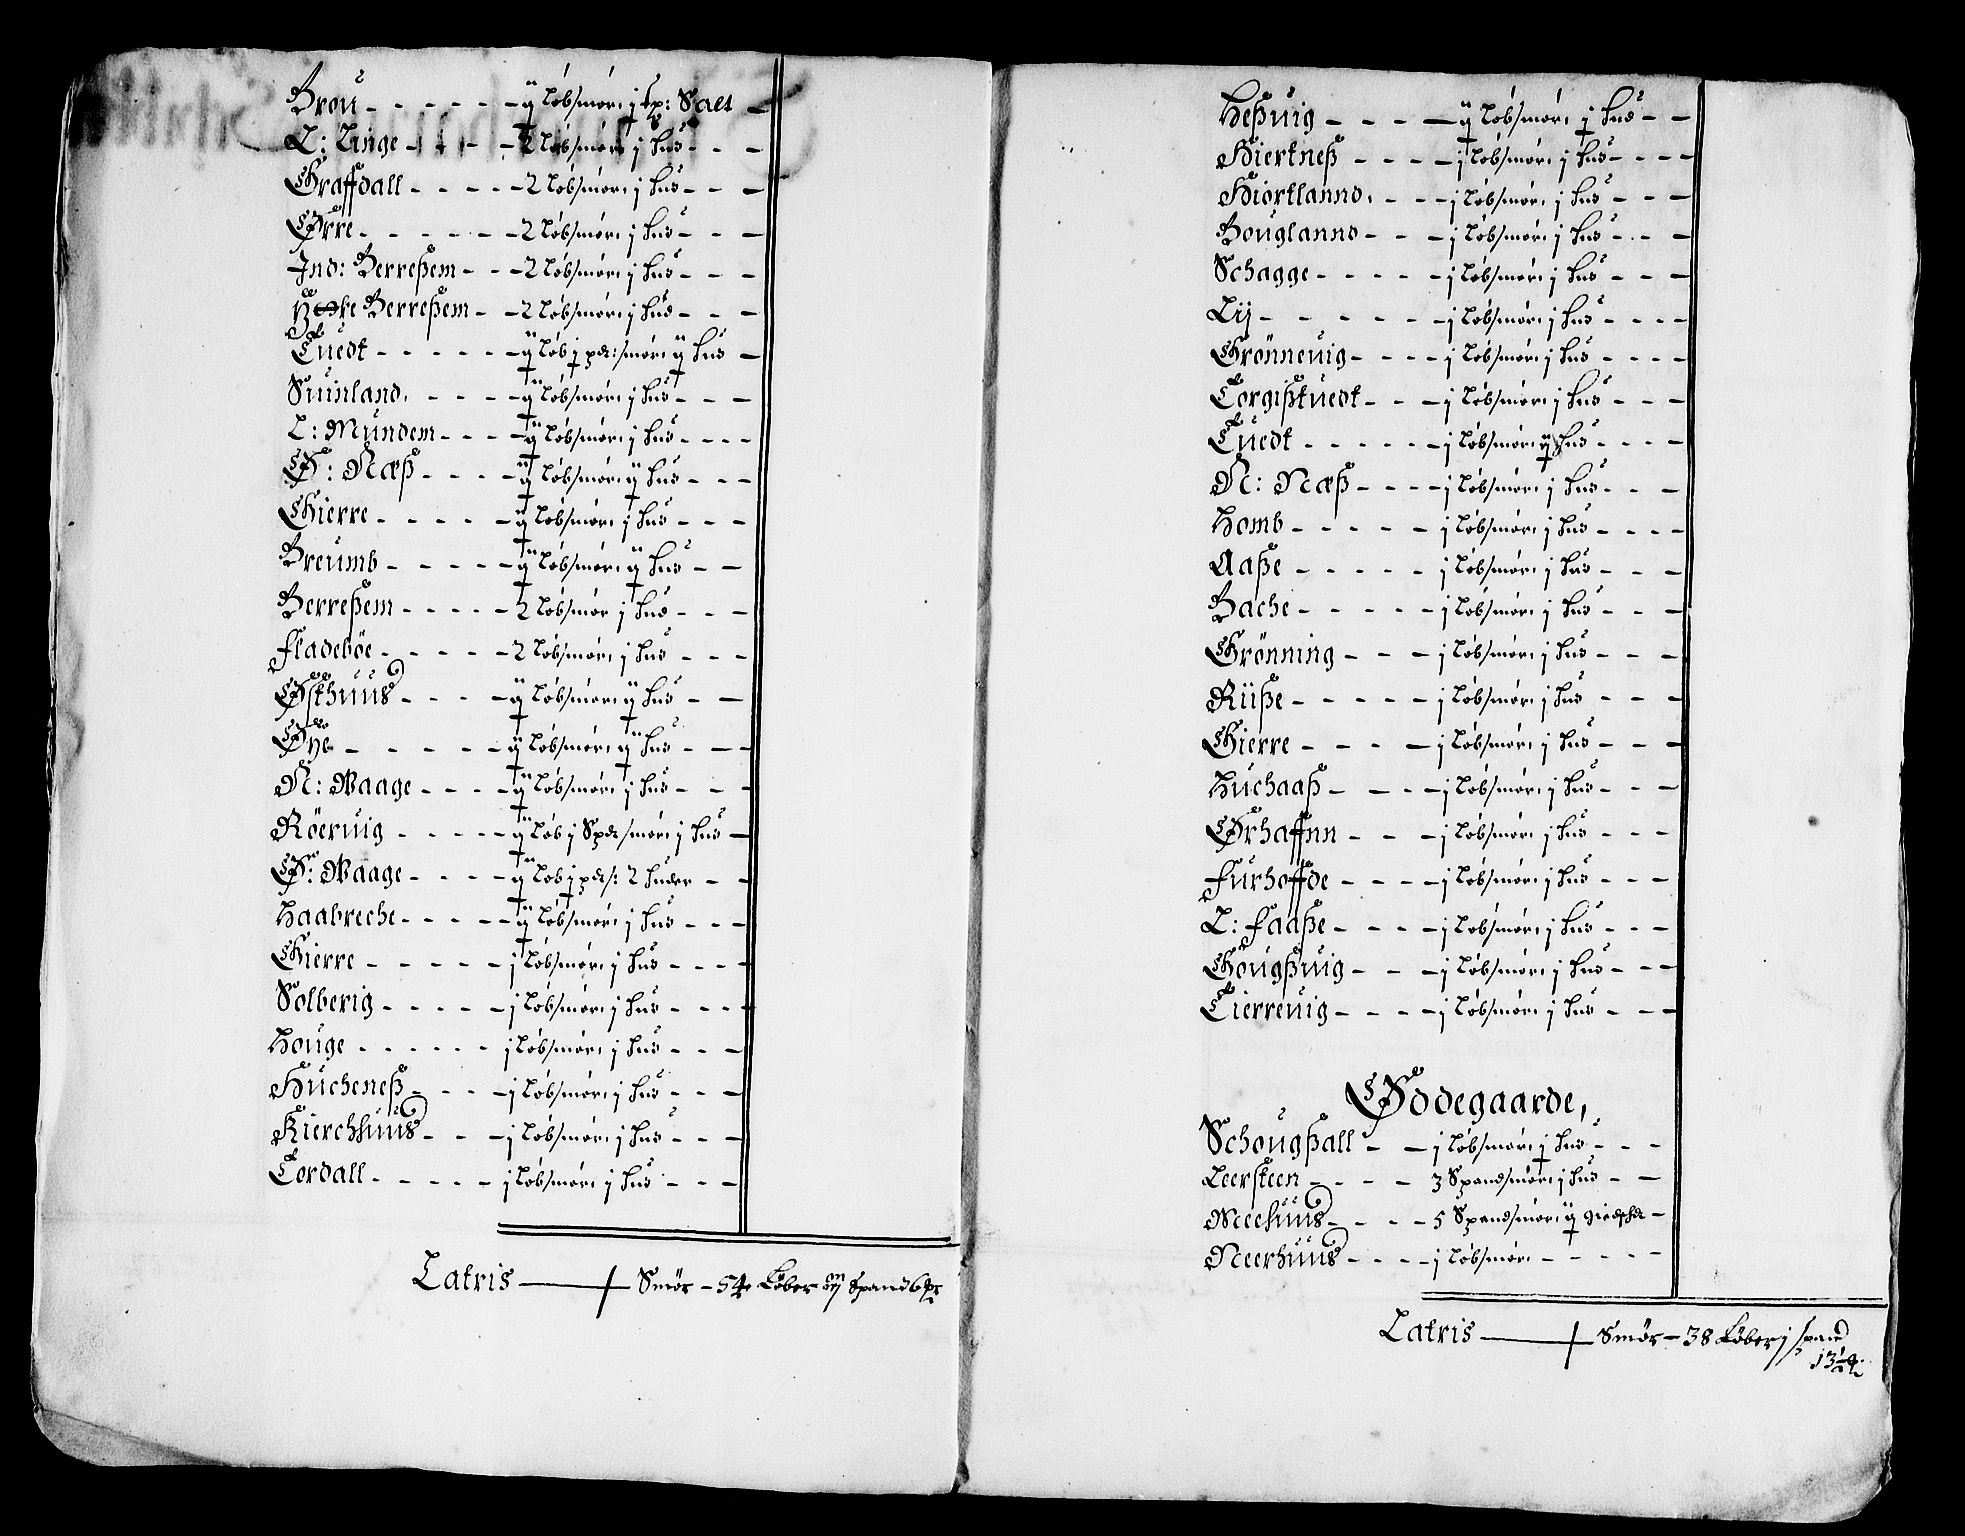 Brou - - - - - ij løbsmør: j sp: Salt
L: Linge - - - - 2 løbsmør: j hud - - -
Graffdall - - - - 2 løbsmør: j hud - - -
Ørre - - - - - 2 løbsmør: j hud - - -
Ind: Berreßem - - - 2 løbsmør: j hud - - -
Berreßem - - 2 løbsmør: j hud - - -
Tuedt - - - - - ij løb j pd: smør: ij hud -
Suinland. - - - - ij løbsmør: j hud - - -
L: Mundem - - - - ij løbsmør: j hud - - - -
Ø: Næß - - - - ij løbsmør: ij hud - - -
Gierre - - - - - ij løbsmør: j hud - - -
Breumb - - - - - ij løbsmør: ij hud - -
Berreßem - - - - 2 løbsmør j hud - - -
Fladeböe - - - - 2 løbsmør j hud - - -
Østhuus - - - - ij løbsmør: ij hud - -
Øye - - - - - ij løbsmør: ij hud - - -
N: Waage - - - - ij løbsmør: j hud - - -
Röeruig - - - - ij løb j Spd smør: j hud -
Ø: Waage - - - - ij løb j pds: 2 huder - -
Haabreche - - - - ij løbsmør: j hud - - -
Gierre - - - - - j løbsmør: j hud - - - -
Solberig - - - - j løbsmør: j hud - - - -
Houge - - - - - - j løbsmør: j hud - - -
Hucheneß - - - - j løbsmør: j hud - - -
Kierchhuus - - - j løbsmør: j hud - - -
Tordall - - - - - j løbsmør: j hud - - -
Latris — Smør - 54 Løber Spand 6
Heßuig - - - - ij løbsmør: j hud - -
Hierkneß - - - - j løbsmør: j hud - - - -
Hiortlannd. - - - j løbsmør: j hud - - -
Bouglannd - - - j løbsmør: j hud - - -
Schagge - - - - - j løbsmør: j hud - - -
Lij - - - - - - j løbsmør: j hud - - - -
Grönneuig - - - - j løbsmør: j hud - - - -
Torgißtuedt - - - j løbsmør: j hud - - -
Tuedt - - - - - j løbsmør: ij hud - - - -
N: Næß - - - - j løbsmør: j hud - - -
Homb - - - - - j løbsmør: j hud - - - -
Aaße - - - - - j løbsmør: j hud - - -
Bache - - - - - j løbsmør: j hud - - -
Grönning - - - j løbsmør: j hud - - -
Riiße - - - - - j løbsmør: j hud - - -
Gierre - - - - j løbsmør: j hud - - -
Huchaaß - - - - j løbsmør: j hud - - -
Ørhaffnn - - - j løbsmør: j hud - - -
Furhoffde - - - - j løbsmør: j hud - - -
L: Faaße - - - - j løbsmør: j hud - - -
Gougßuig - - - j løbsmør: j hud - - -
Tierreuig - - - - j løbsmør: j hud - - -
Ødegaarde,
Schougßall - - j løbsmør: j hud - - -
Leersteen - - - - 3 Spandsmør: j hud - -
Meehuus - - - - 5 Spandsmør: ij -
Neerhuus - - - - j løbsmør - - - - -
Latris — Smør - 38 Løber j spand
13½